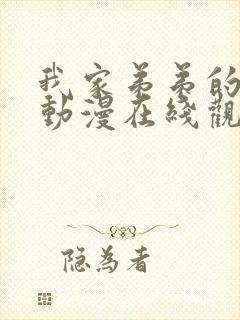 我家弟弟的
動漫在綫觀
隐為者